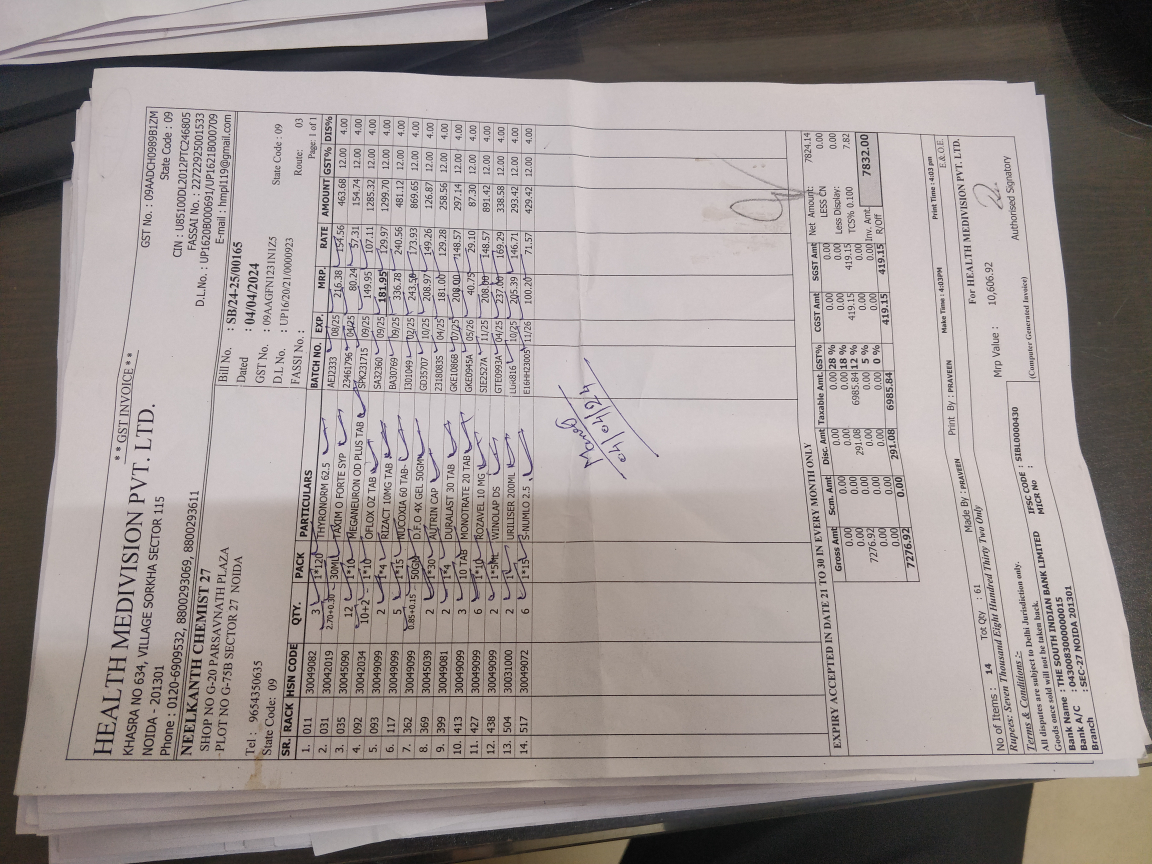 * * GST INVOICE * *
HEALTH MEDIVISION PVT. LTD.
KHASRA NO 634, VILLAGE SORKHA SECTOR 115
NOIDA - 201301
Phone : 0120-6909532, 8800293069, 8800293611
GST No. : 09AADCH0989B1ZM
State Code : 09
CIN : U85100DL2012PTC246805
FASSAI No. : 22722925001533
D.L.No. : UP1620B000691/UP1621B000709
E-mail : hmpl119@gmail.com
NEELKANTH CHEMIST 27
SHOP NO G-20 PARSAVNATH PLAZA
PLOT NO G-75B SECTOR 27 NOIDA
Tel : 9654350635
State Code: 09
Bill No. : SB/24-25/00165
Dated : 04/04/2024
GST No. : 09AAGFN1231N1Z5 State Code : 09
D.L No. : UP16/20/21/0000923
FASSI No. : Route: 03
Page: 1 of 1
SR. RACK HSN CODE QTY. PACK PARTICULARS BATCH NO. EXP. MRP. RATE AMOUNT GST% DIS%
1. 011 30049082 3 1*120 THYRONORM 62.5 AEJ2333 08/25 216.38 154.56 463.68 12.00 4.00
2. 031 30042019 2.70+0.30 30ML TAXIM O FORTE SYP 23461796 04/25 80.24 57.31 154.74 12.00 4.00
3. 035 30045090 12 1*10 MEGANEURON OD PLUS TAB SPK231715 09/25 149.95 107.11 1285.32 12.00 4.00
4. 092 30042034 10+2 1*10 OFLOX OZ TAB SA32360 09/25 181.95 129.97 1299.70 12.00 4.00
5. 093 30049099 2 1*4 RIZACT 10MG TAB BA30769 09/25 336.78 240.56 481.12 12.00 4.00
6. 117 30049099 5 1*15 NUCOXIA 60 TAB- 1301049 02/25 243.50 173.93 869.65 12.00 4.00
7. 362 30049099 0.85+0.15 50GM D.F.O 4X GEL 50GM GD35707 10/25 208.97 149.26 126.87 12.00 4.00
8. 369 30045039 2 1*30 AUTRIN CAP 2318083S 04/25 181.00 129.28 258.56 12.00 4.00
9. 399 30049081 2 1*4 DURALAST 30 TAB GKE1086B 07/25 208.00 148.57 297.14 12.00 4.00
10. 413 30049099 3 10 TAB MONOTRATE 20 TAB GKE0945A 05/26 40.75 29.10 87.30 12.00 4.00
11. 427 30049099 6 1*10 ROZAVEL 10 MG SIE2527A 11/25 208.00 148.57 891.42 12.00 4.00
12. 438 30049099 2 1*5ML WINOLAP DS GTE0993A 04/25 237.00 169.29 338.58 12.00 4.00
13. 504 30031000 2 1 URILISER 200ML LUR816 10/25 205.39 146.71 293.42 12.00 4.00
14. 517 30049072 6 1*15 S-NUMLO 2.5 E16HH23005 11/26 100.20 71.57 429.42 12.00 4.00
04/04/24
EXPIRY ACCEPTED IN DATE 21 TO 30 IN EVERY MONTH ONLY
Gross Amt Scm. Amt Disc. Amt Taxable Amt. GST% CGST Amt SGST Amt
0.00 0.00 0.00 0.00 28 % 0.00 0.00
0.00 0.00 0.00 0.00 18 % 0.00 0.00
7276.92 0.00 291.08 6985.84 12 % 419.15 419.15
0.00 0.00 0.00 0.00 5 % 0.00 0.00
0.00 0.00 0.00 0.00 0 % 0.00 0.00
7276.92 0.00 291.08 6985.84 419.15 419.15
Net Amount: 7824.14
LESS CN 0.00
Less Display: 0.00
TCS% 0.100 7.82
Inv. Amt. 7832.00
R/Off
Made By : PRAVEEN Print By : PRAVEEN Make Time : 4:03PM Print Time : 4:03 pm E.& O.E.
No of Items : 14 Tot Qty : 61 Mrp Value : 10,606.92
Rupees: Seven Thousand Eight Hundred Thirty Two Only
For HEALTH MEDIVISION PVT. LTD.
Terms & Conditions :-
All disputes are subject to Delhi Jurisdiction only.
Goods once sold will not be taken back.
Bank Name : THE SOUTH INDIAN BANK LIMITED IFSC CODE : SIBL0000430
Bank A/C : 0430083000000015 MICR No
Branch : SEC-27 NOIDA 201301
(Computer Generated Invoice)
Authorised Signatory